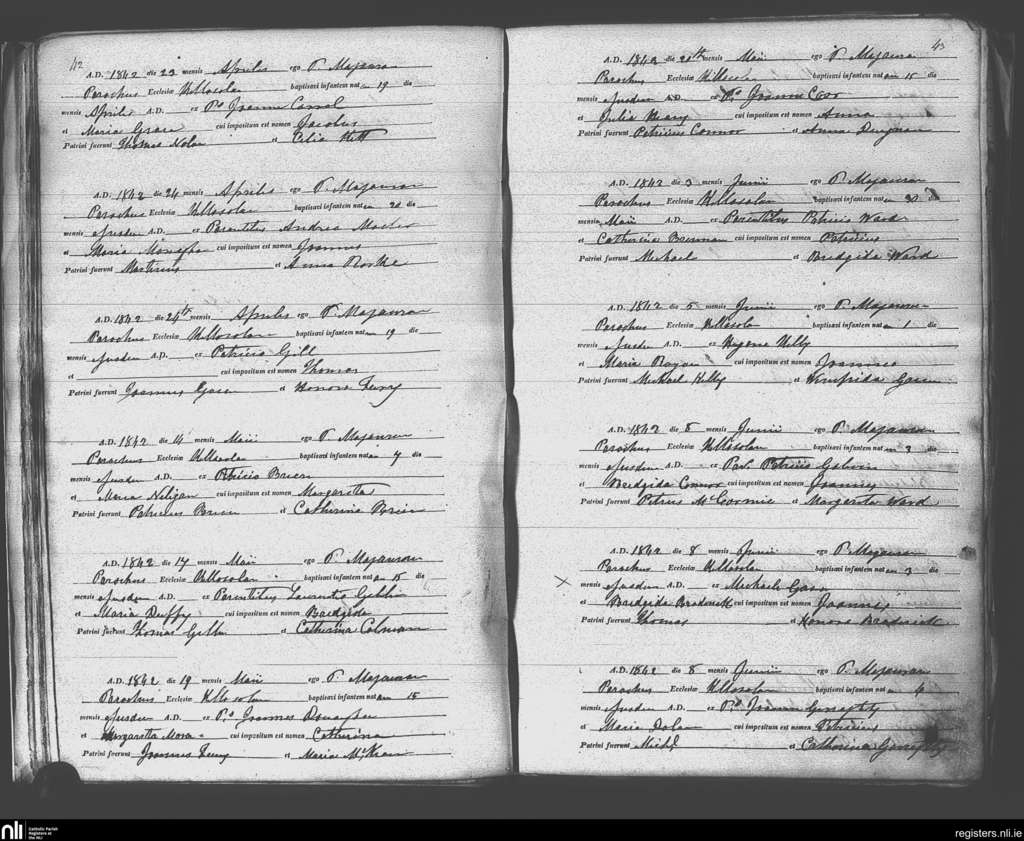 42
A.D. 1842 die 23 mensis Aprilis ego P. Magauran
Parochus Ecclesiæ Killosolan baptisavi infantem natam 19 die
mensis Aprilis A.D. ex Joanne Carrol
et Maria cui impositum est nomen Jacobus
Patrini fuerunt Thomas Nolan et Celia Hett
A.D. 1842 die 24 mensis Aprilis ego P. Magauran
Parochus Ecclesiæ Killosolan baptisavi infantem natam 20 die
mensis ejusdem A.D. ex Parentibus Andrea
et Maria cui impositum est nomen Joannes
Patrini fuerunt Martinus et Anna Rorke
A.D. 1842 die 24th mensis Aprilis ego P. Magauran
Parochus Ecclesiæ Killosolan baptisavi infantem natam 19 die
mensis ejusdem A.D. ex Patricio Gill
et cui impositum est nomen Thomas
Patrini fuerunt Joannes et Honora Fury
A.D. 1842 die 14 mensis Maii ego P. Magauran
Parochus Ecclesiæ Killosolan baptisavi infantem natam 7 die
mensis ejusdem A.D. ex Patricio Brien
et Maria Neligan cui impositum est nomen Margaretta
Patrini fuerunt Patricius Brien et Catherina Brien
A.D. 1842 die 17 mensis Maii ego P. Magauran
Parochus Ecclesiæ Killosolan baptisavi infantem natam 15 die
mensis ejusdem A.D. ex Parentibus Laurentio
et Maria Duffy cui impositum est nomen Bredgida
Patrini fuerunt Thomas et Catherina Colman
A.D. 1842 die 19 mensis Maii ego P. Magauran
Parochus Ecclesiæ Killosolan baptisavi infantem natam 15
mensis ejusdem A.D. ex Joannes
et Margaretta cui impositum est nomen Catherina
Patrini fuerunt Joannes Fury et Maria
43
A.D. 1842 die 20th mensis Maii ego P. Magauran
Parochus Ecclesiæ Killosolan baptisavi infantem natam 15 die
mensis ejusdem A.D. ex Joanne
et Julia cui impositum est nomen Anna
Patrini fuerunt Patricius Connor et Anna
A.D. 1842 die 3 mensis Junii ego P. Magauran
Parochus Ecclesiæ Killosolan baptisavi infantem natam 30 die
mensis Maii A.D. ex Parentibus Patricio Ward
et Catherina Brennan cui impositum est nomen Patricius
Patrini fuerunt Michael et Bredgida Ward
A.D. 1842 die 5 mensis Junii ego P. Magauran
Parochus Ecclesiæ Killosolan baptisavi infantem natam 1 die
mensis ejusdem A.D. ex Eugene Killy
et Maria cui impositum est nomen Joannes
Patrini fuerunt Michael Killy et Winifrida
A.D. 1842 die 8 mensis Junii ego P. Magauran
Parochus Ecclesiæ Killosolan baptisavi infantem natam 3 die
mensis ejusdem A.D. ex Par. Patricio Galvin
et Bredgida Connor cui impositum est nomen Joannes
Patrini fuerunt Petrus McCormic et Margarita Ward
A.D. 1842 die 8 mensis Junii ego P. Magauran
Parochus Ecclesiæ Killosolan baptisavi infantem natam 3 die
mensis ejusdem A.D. ex Michaele
et Bredgida Broderick cui impositum est nomen Joannes
Patrini fuerunt Thomas et Honora Broderick
A.D. 1842 die 8 mensis Junii ego P. Magauran
Parochus Ecclesiæ Killosolan baptisavi infantem natam 4 die
mensis ejusdem A.D. ex Joanne Geraghty
et Maria Dolan cui impositum est nomen Patricius
Patrini fuerunt Michl et Catherina Geraghty
nli Catholic Parish
Registers at
the NLI
registers.nli.ie